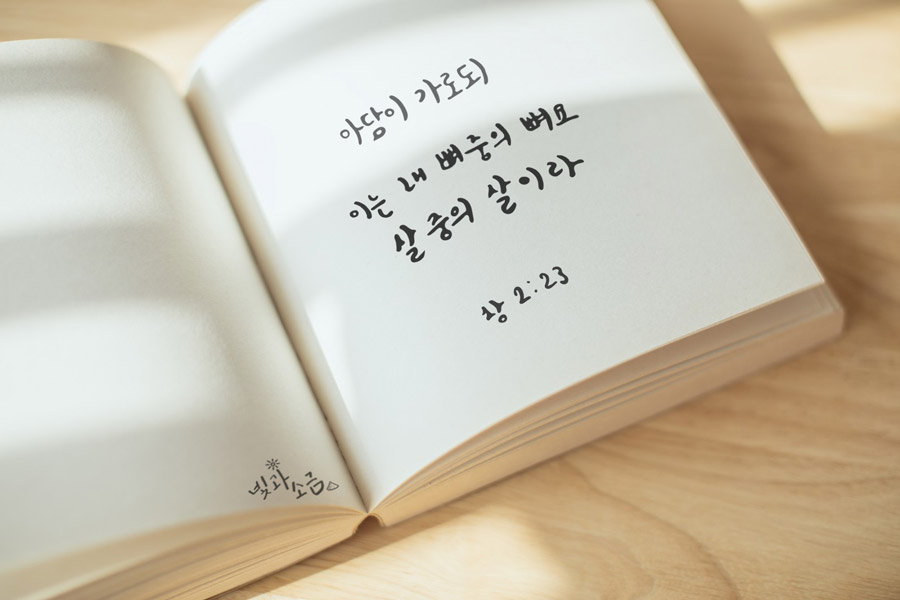 아담이 가로되
이는 내 뼈 중의 뼈요
살 중의 살이라
창 2:23
빛과 소금